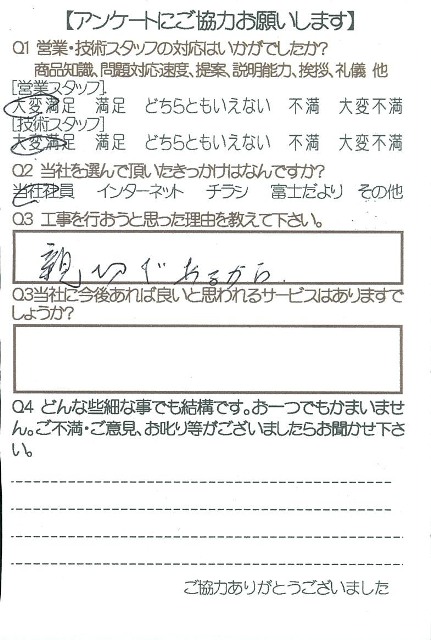 【アンケートにご協力お願いします】
Q1 営業・技術スタッフの対応はいかがでしたか?
商品知識、問題対応速度、提案、説明能力、挨拶、礼儀 他
[営業スタッフ]
大変満足 満足 どちらともいえない 不満 大変不満
[技術スタッフ]
大変満足 満足 どちらともいえない 不満 大変不満
Q2 当社を選んで頂いたきっかけはなんですか?
当社社員 インターネット チラシ 富士だより その他
Q3 工事を行おうと思った理由を教えて下さい。
親切であるから.
Q3当社に今後あれば良いと思われるサービスはありますで
しょうか?
Q4 どんな些細な事でも結構です。お一つでもかまいませ
ん。ご不満・ご意見、お叱り等がございましたらお聞かせ下さ
い。
ご協力ありがとうございました